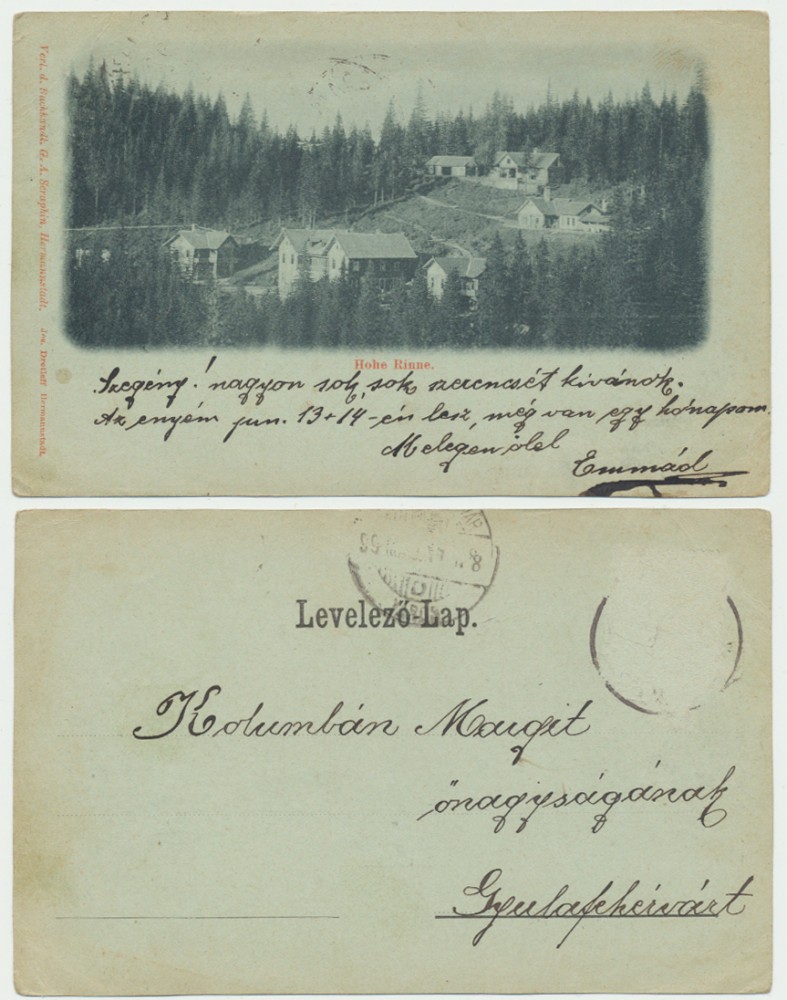 Verl. d. Buchhandl. G. A. Seraphin, Hermannstadt.
Jos. Drotleff Hermannstadt.
Hohe Rinne.
Szegény! nagyon sok, sok szerencsét kivánok.
Az enyém jun. 13+14-én lesz, még van egy hónapom.
Melegen ölel
Emmád
Levelező-Lap.
Kolumbán Margit
őnagyságának
Gyulafehérvárt